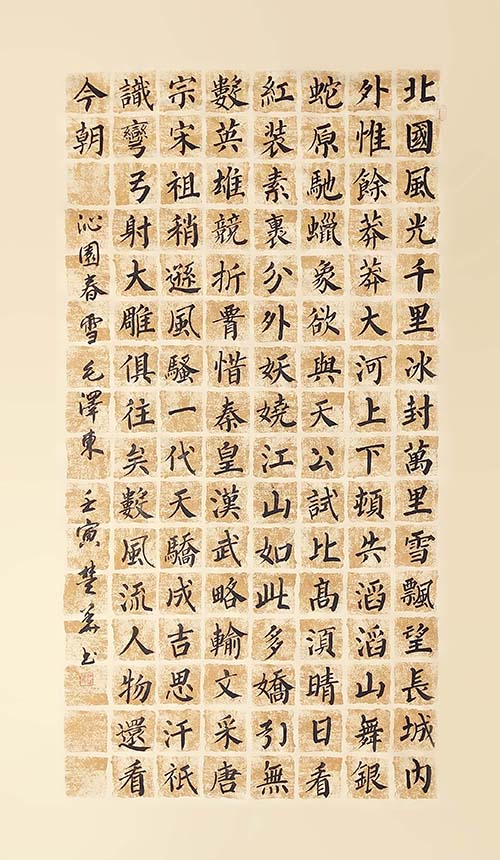 北國風光千里冰封萬里雪飄望長城内
外惟餘莽莽大河上下頓失滔滔山舞銀
蛇原馳蠟象欲與天公試比高須晴日看
紅装素裹分外妖嬈江山如此多嬌引無
數英雄競折腰惜秦皇漢武略輸文采唐
宗宋祖稍遜風騷一代天驕成吉思汗祇
識彎弓射大雕俱往矣數風流人物還看
今朝 沁園春雪毛澤東 壬寅楚书